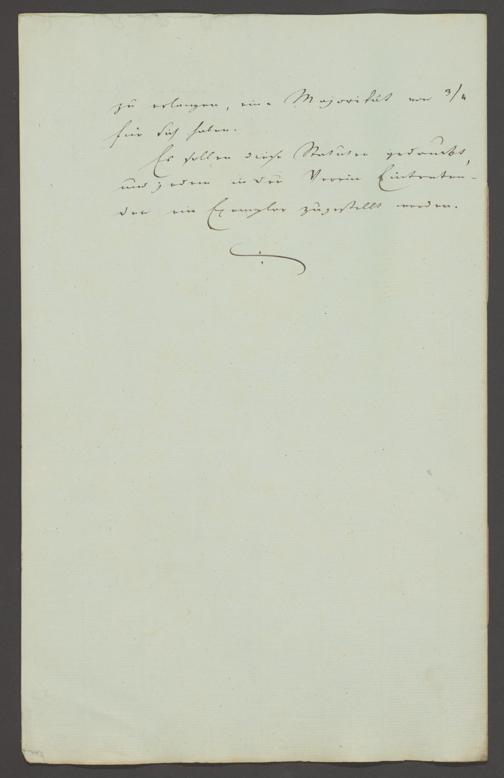 zu erlangen, eine Majorität von 3/4
für sich haben.
Es sollen diese Statuten gedruckt,
und jedem in den Verein Eintreten-
den ein Exemplar zugestellt werden.